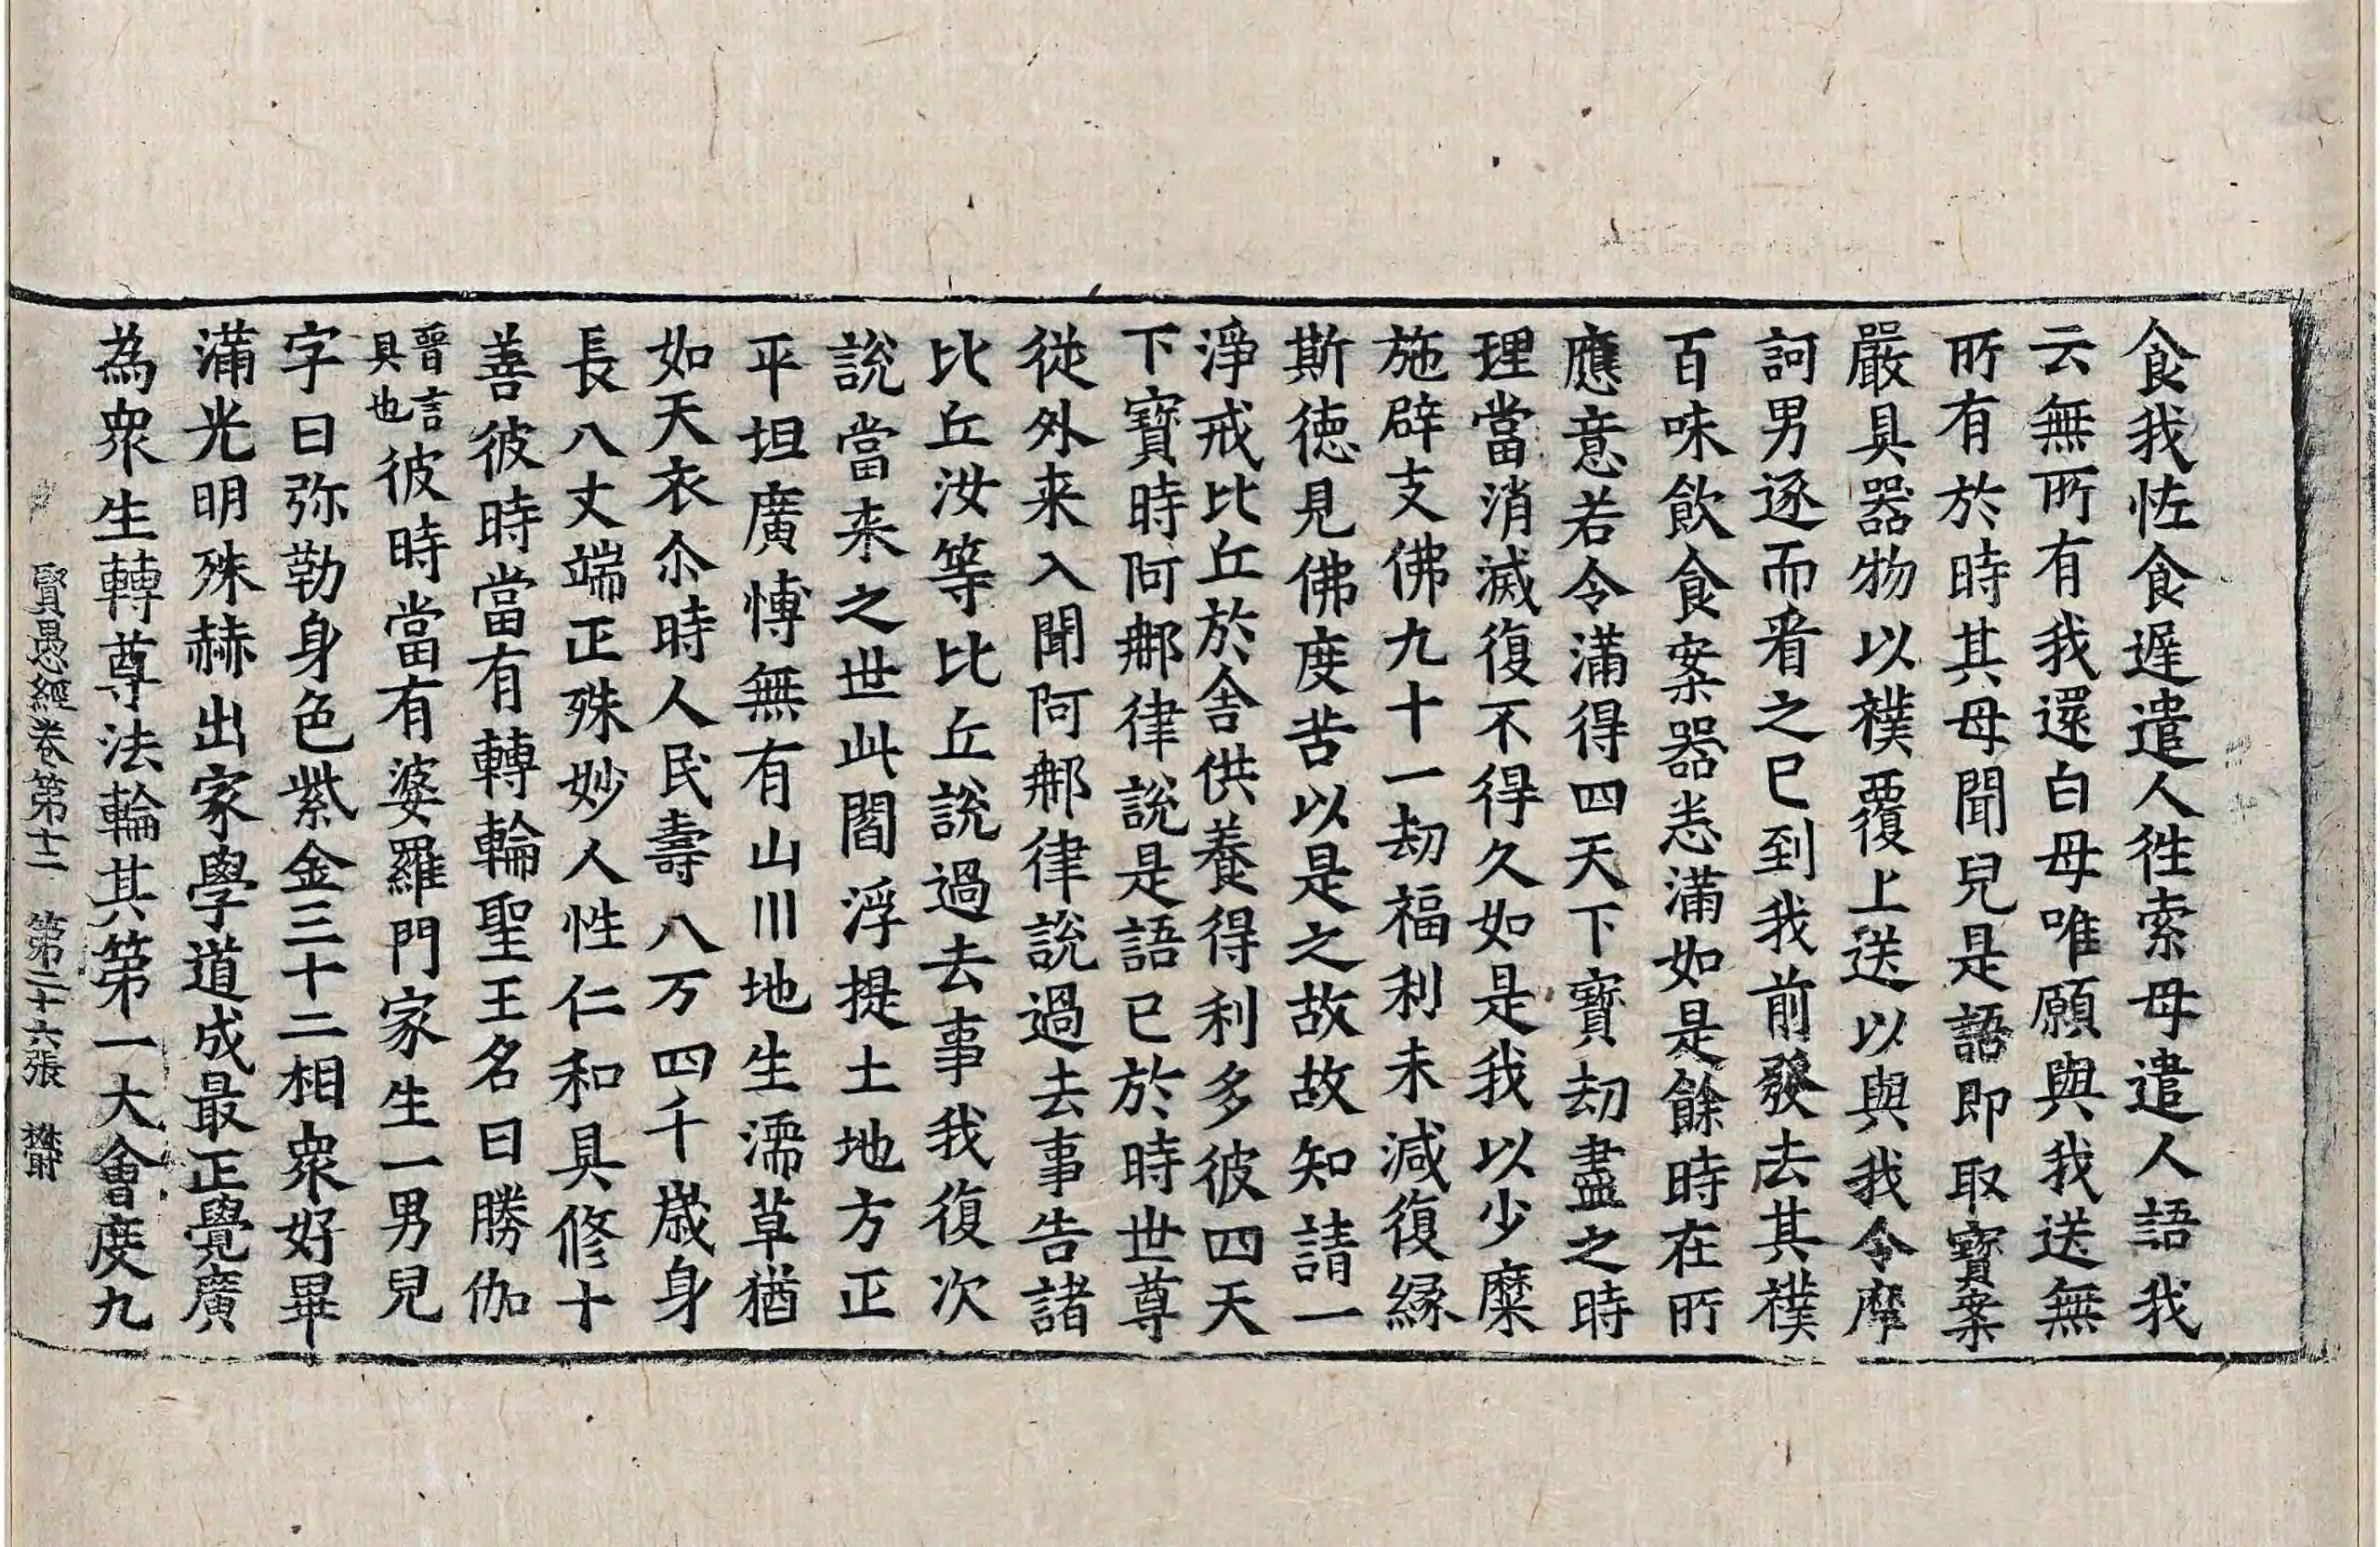 食我怪食遅遣人徃索母遣人語我
云無所有我還白母唯願與我送無
所有於時其母聞兒是語即取寳案
嚴具器物以襆覆上送以與我令摩
訶男逐而看之已到我前發去其襆
百味飲食案器悉滿如是餘時在所
應意若令滿得四天下寳劫盡之時
理當消滅復不得久如是我以少糜
施辟支佛九十一劫福利未減復縁
斯徳見佛度苦以是之故故知請一
淨戒比丘於舍供養得利多彼四天
下寳時阿那律說是語已於時世尊
從外来入聞阿那律說過去事告諸
比丘汝等比丘說過去事我復次
說當来之世此閻浮提土地方正
平坦廣博無有山川地生濡草猶
如天衣尒時人民壽八万四千歳身
長八丈端正殊妙人性仁和具修十
善彼時當有轉輪聖王名曰勝伽
晉言具也彼時當有婆羅門家生一男兒
字曰弥勒身色紫金三十二相衆好畢
滿光明殊赫出家學道成最正覺廣
為衆生轉尊法輪其第一大會度九
賢愚經卷第十二 第二十六張